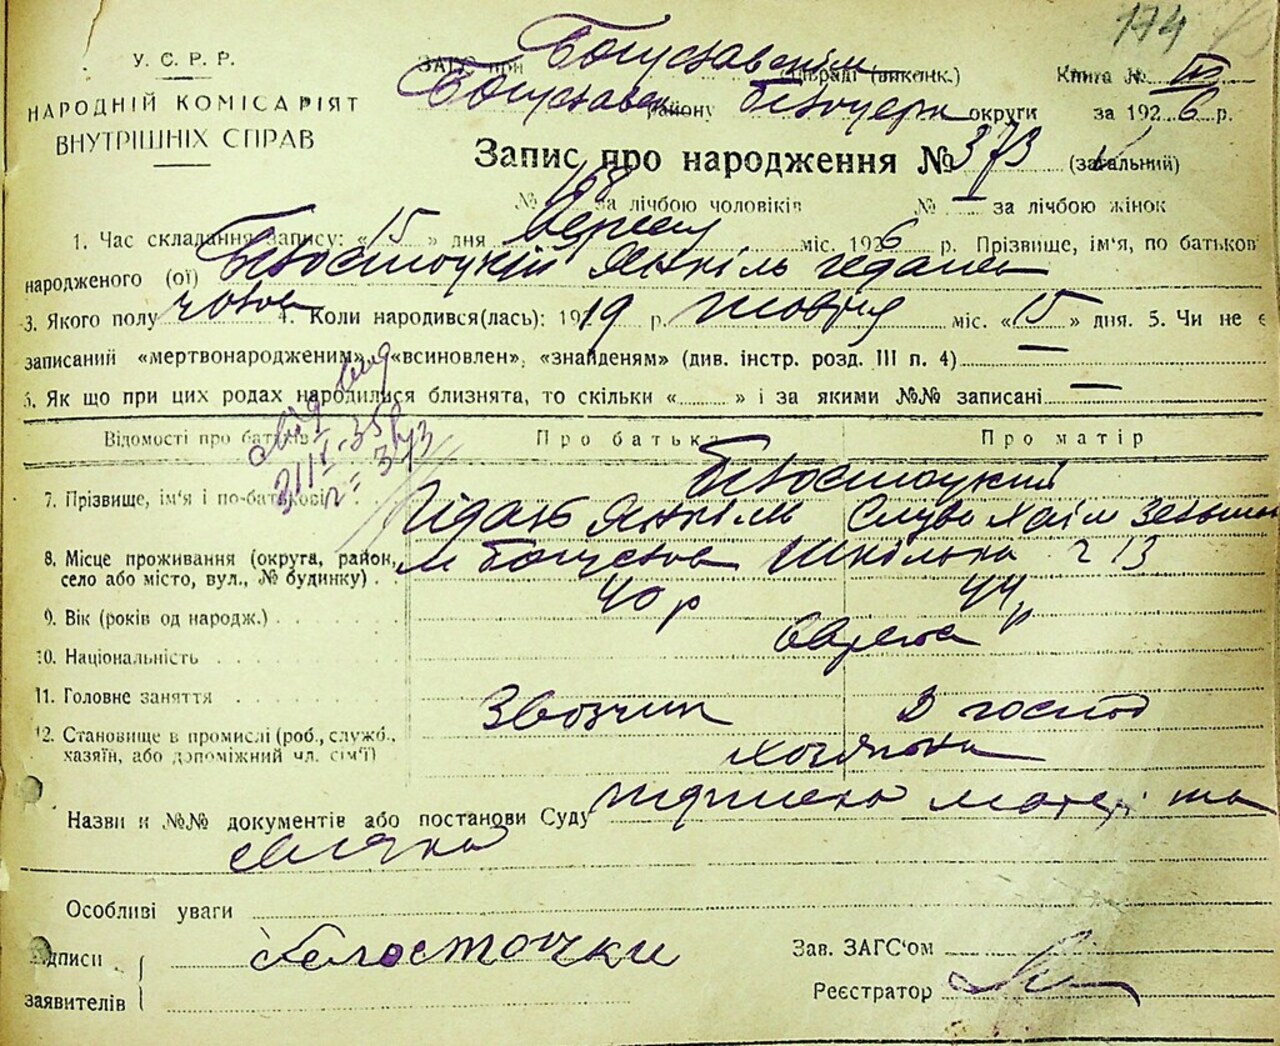 174
У. С. Р. Р.
НАРОДНІЙ КОМІСАРІЯТ
ВНУТРІШНІХ СПРАВ
ЗАГС при Богуславськім (виконк.) Книга № III
Богуславськ району Білоцерк округи за 1926 р.
Запис про народження № 373 (загальний)
№ 168 за лічбою чоловіків № — за лічбою жінок
1. Час складання запису: «15» дня Вересня міс. 1926 р. Прізвище, ім'я, по батькові
народженого (ої) Білостоцкій Янкіль
3. Якого полу чолов 4. Коли народився(лась): 1919 р. жовтня міс. «15» дня. 5. Чи не є
записаний «мертвонародженим», «всиновлен», «знайденям» (див. інстр. розд. III п. 4) —
6. Як що при цих родах народилися близнята, то скільки « » і за якими №№ записані —
Відомості про батьків Про батька Про матір
Білостоцкий
7. Прізвище, ім'я і по-батькові Янкіль
8. Місце проживання (округа, район, м Богуслав Шкільна 13
село або місто, вул., № будинку)
9. Вік (років од народж.) 40 р 44 р
10. Національність Евреї
11. Головне заняття Звозчик В господ
12. Становище в промислі (роб., служб.,
хазяїн, або допоміжний чл. сім'ї)
Назви и №№ документів або постанови Суду підписка матері та
свідка
Особливі уваги
Підписи Белосточки Зав. ЗАГС'ом
заявителів Реєстратор